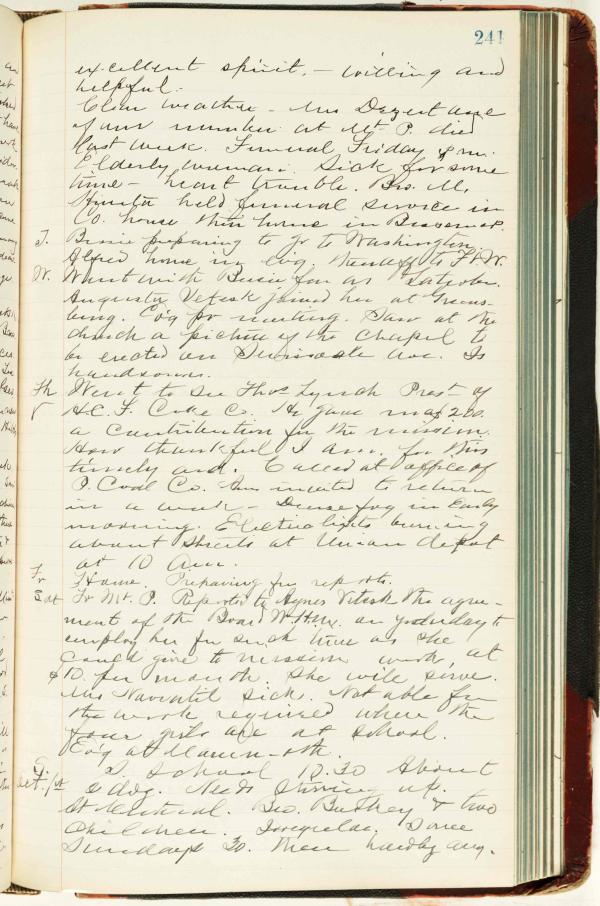 241
excellent spirit, – willing and
helpful.
Clear weather – Mrs one
of our number at Mt. P. died
last week. Funeral Friday p.m.
Elderly woman. Sick for some
time – heart trouble. Bro. M.
held funeral service in
Co. house their home in
T. Bessie preparing to go to Washington.
Alfred home in evg.
W. Went with Bessie far as Latrobe.
Augusta Vetesk joined her at Greens-
burg. Evg pr meeting. Saw at the
church a picture of the Chapel to
be erected on Ave. Is
handsome.
Th Went to see Thos Lynch Prest – of
H.C.F. Coke Co. He gave me $200.
a contribution for the mission.
How thankful I am for this
timely aid. Called at office of
P. Coal Co. Am invited to return
in a week – Dense fog in early
morning. Electric lights burning
about streets at Union depot
at 10 A.m.
Fr Home. Preparing for reports.
Sat To Mt. P. Reported to Agnes Vitesk the agree-
ment of the Board W.H.M. on yesterday to
employ her for such time as she
could give to mission work, at
$10. per month. She will serve.
Mrs Navratil sick. Not able for
the work required where the
four girls are at school.
Ev'g at Mamm-oth.
S. Oct. 1st S. School 10.30 About
Needs stirring up.
Bro. & two
Children. Irregular. Some
Sundays 30. then hardly any.